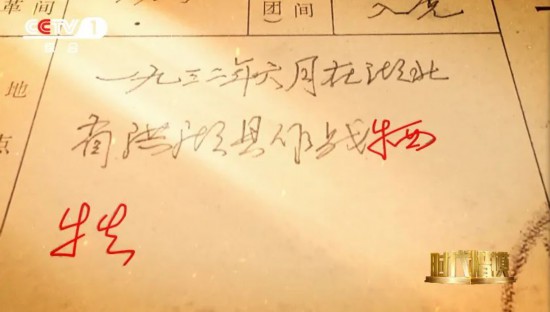 CCTV 1
综合
革间
团)间
入党
地
点
一九三二年六月在湖北
省洪湖县作战牺
牲
时代楷模